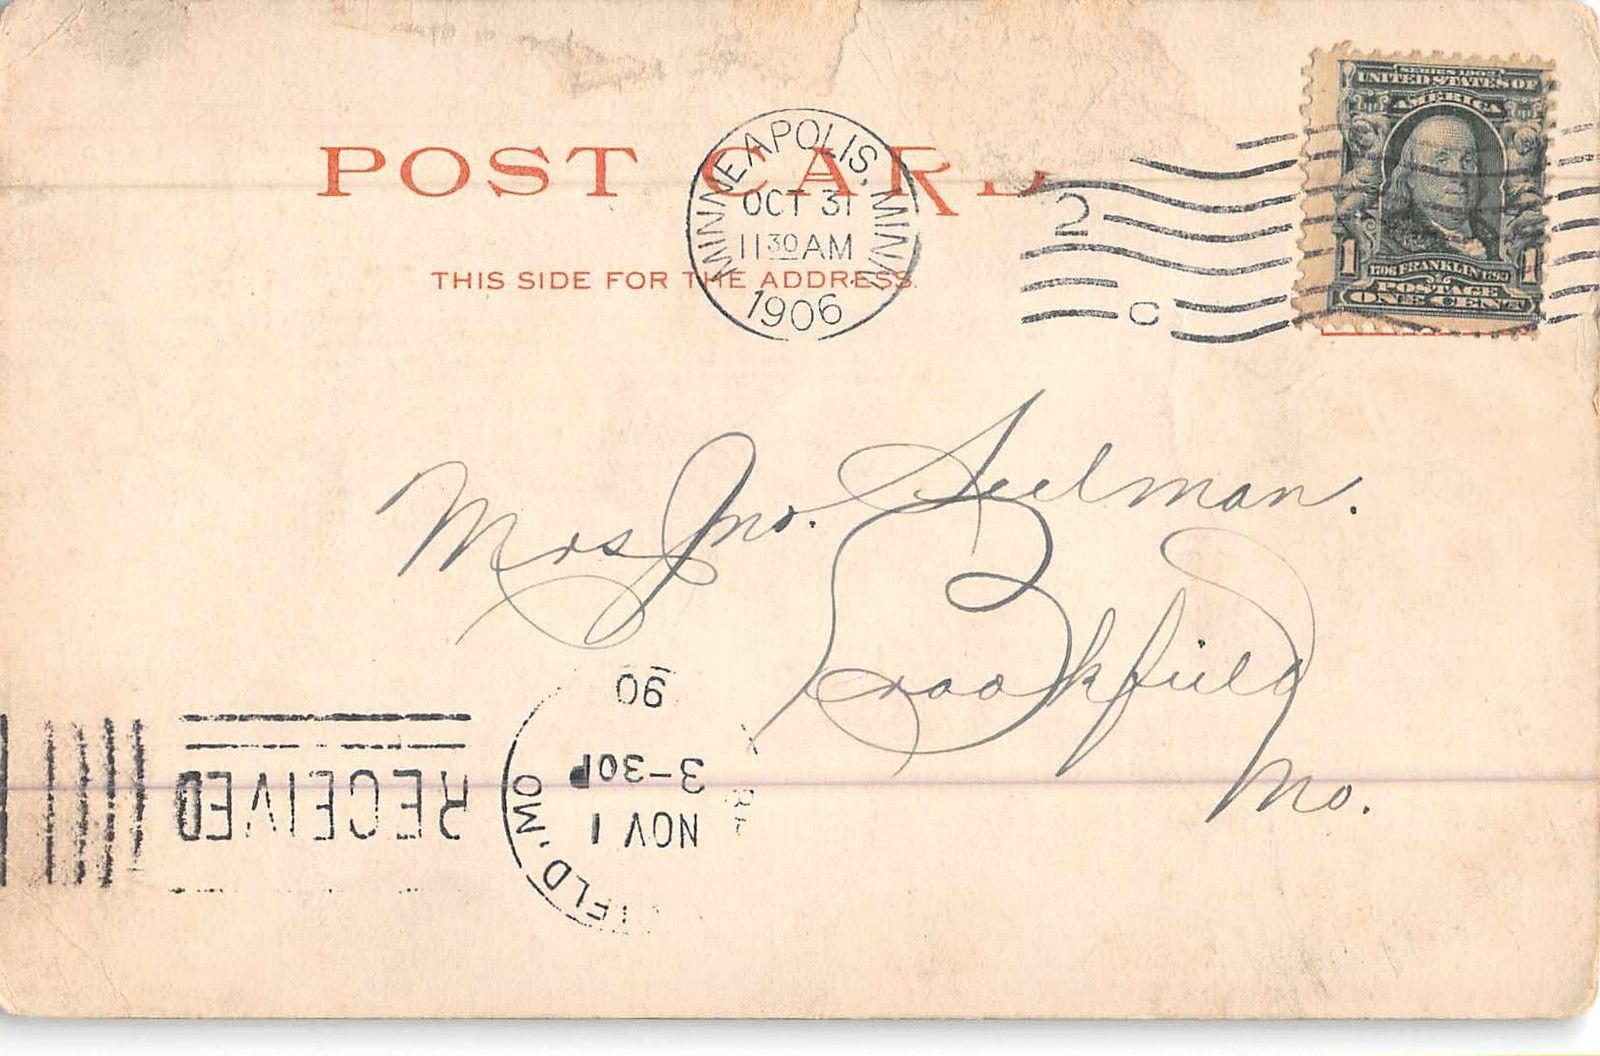 POST CARD
THIS SIDE FOR THE ADDRESS.
MINNEAPOLIS, MINN.
OCT 31
11 30 AM
1906
2
C
SERIES 1902
UNITED STATES OF
AMERICA
1 1706 FRANKLIN 1790 1
POSTAGE
ONE CENT
Mrs Jno. Seelman.
Brookfield
Mo.
RECEIVED
NOV 1
3-30P
06
IFLD, MO